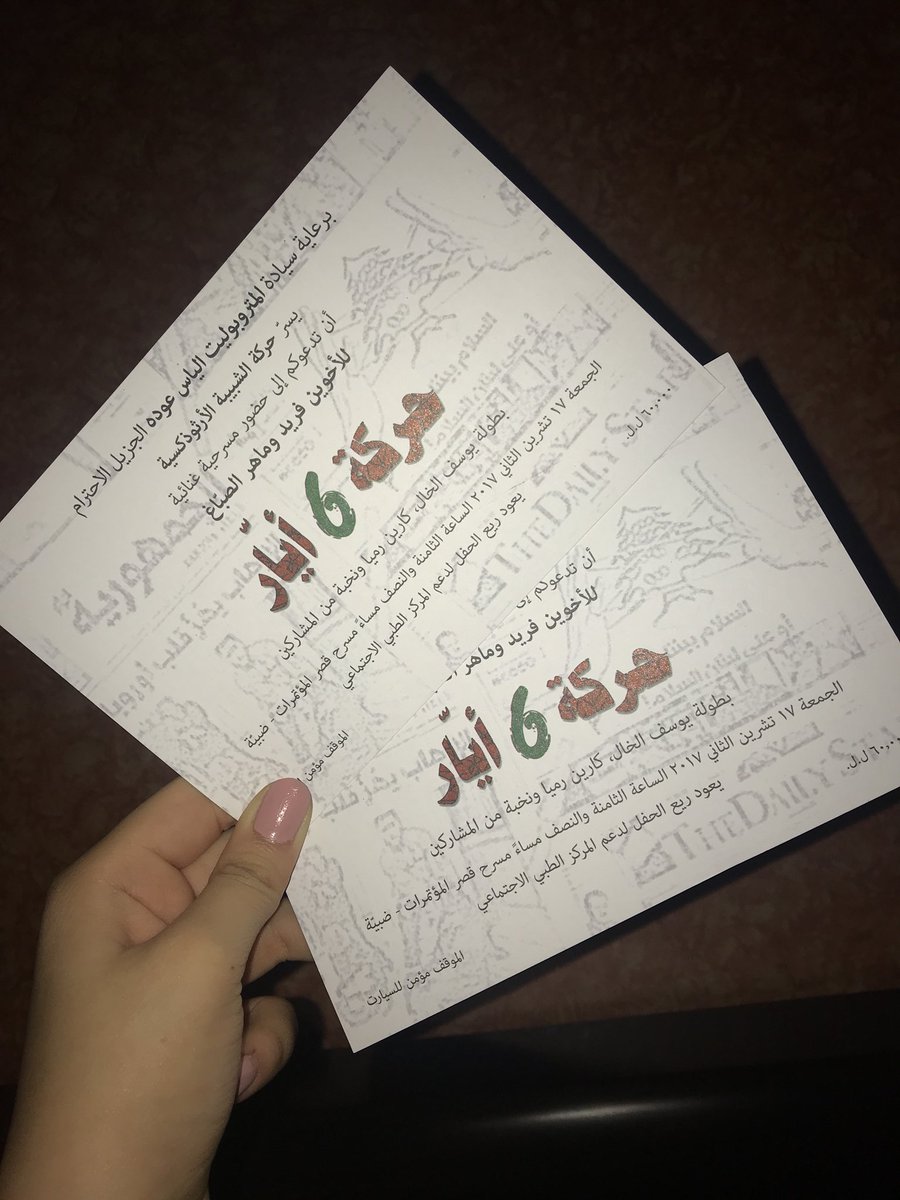 برعاية سيادة المتروبوليت الياس عوده الجزيل الاحترام
يسرّ حركة الشبيبة الأرثوذكسية
أن تدعوكم إلى حضور مسرحية غنائية
للأخوين فريد وماهر الصبّاغ
حركة 6 أيّار
بطولة يوسف الخال، كارين رميا ونخبة من المشاركين
الجمعة ١٧ تشرين الثاني ٢٠١٧ الساعة الثامنة والنصف مساءً مسرح قصر المؤتمرات - ضبيّة
يعود ريع الحفل لدعم المركز الطبي الاجتماعي
٦٠,٠٠٠ ل.ل.
الموقف مؤمن
أن تدعوكم إ
للأخوين فريد وماهر
حركة 6 أيّار
بطولة يوسف الخال، كارين رميا ونخبة من المشاركين
الجمعة ١٧ تشرين الثاني ٢٠١٧ الساعة الثامنة والنصف مساءً مسرح قصر المؤتمرات - ضبيّة
يعود ريع الحفل لدعم المركز الطبي الاجتماعي
٦٠,٠٠٠ ل.ل.
الموقف مؤمن للسيارت
الجمهورية
THE DAILY S
THE DAILY S